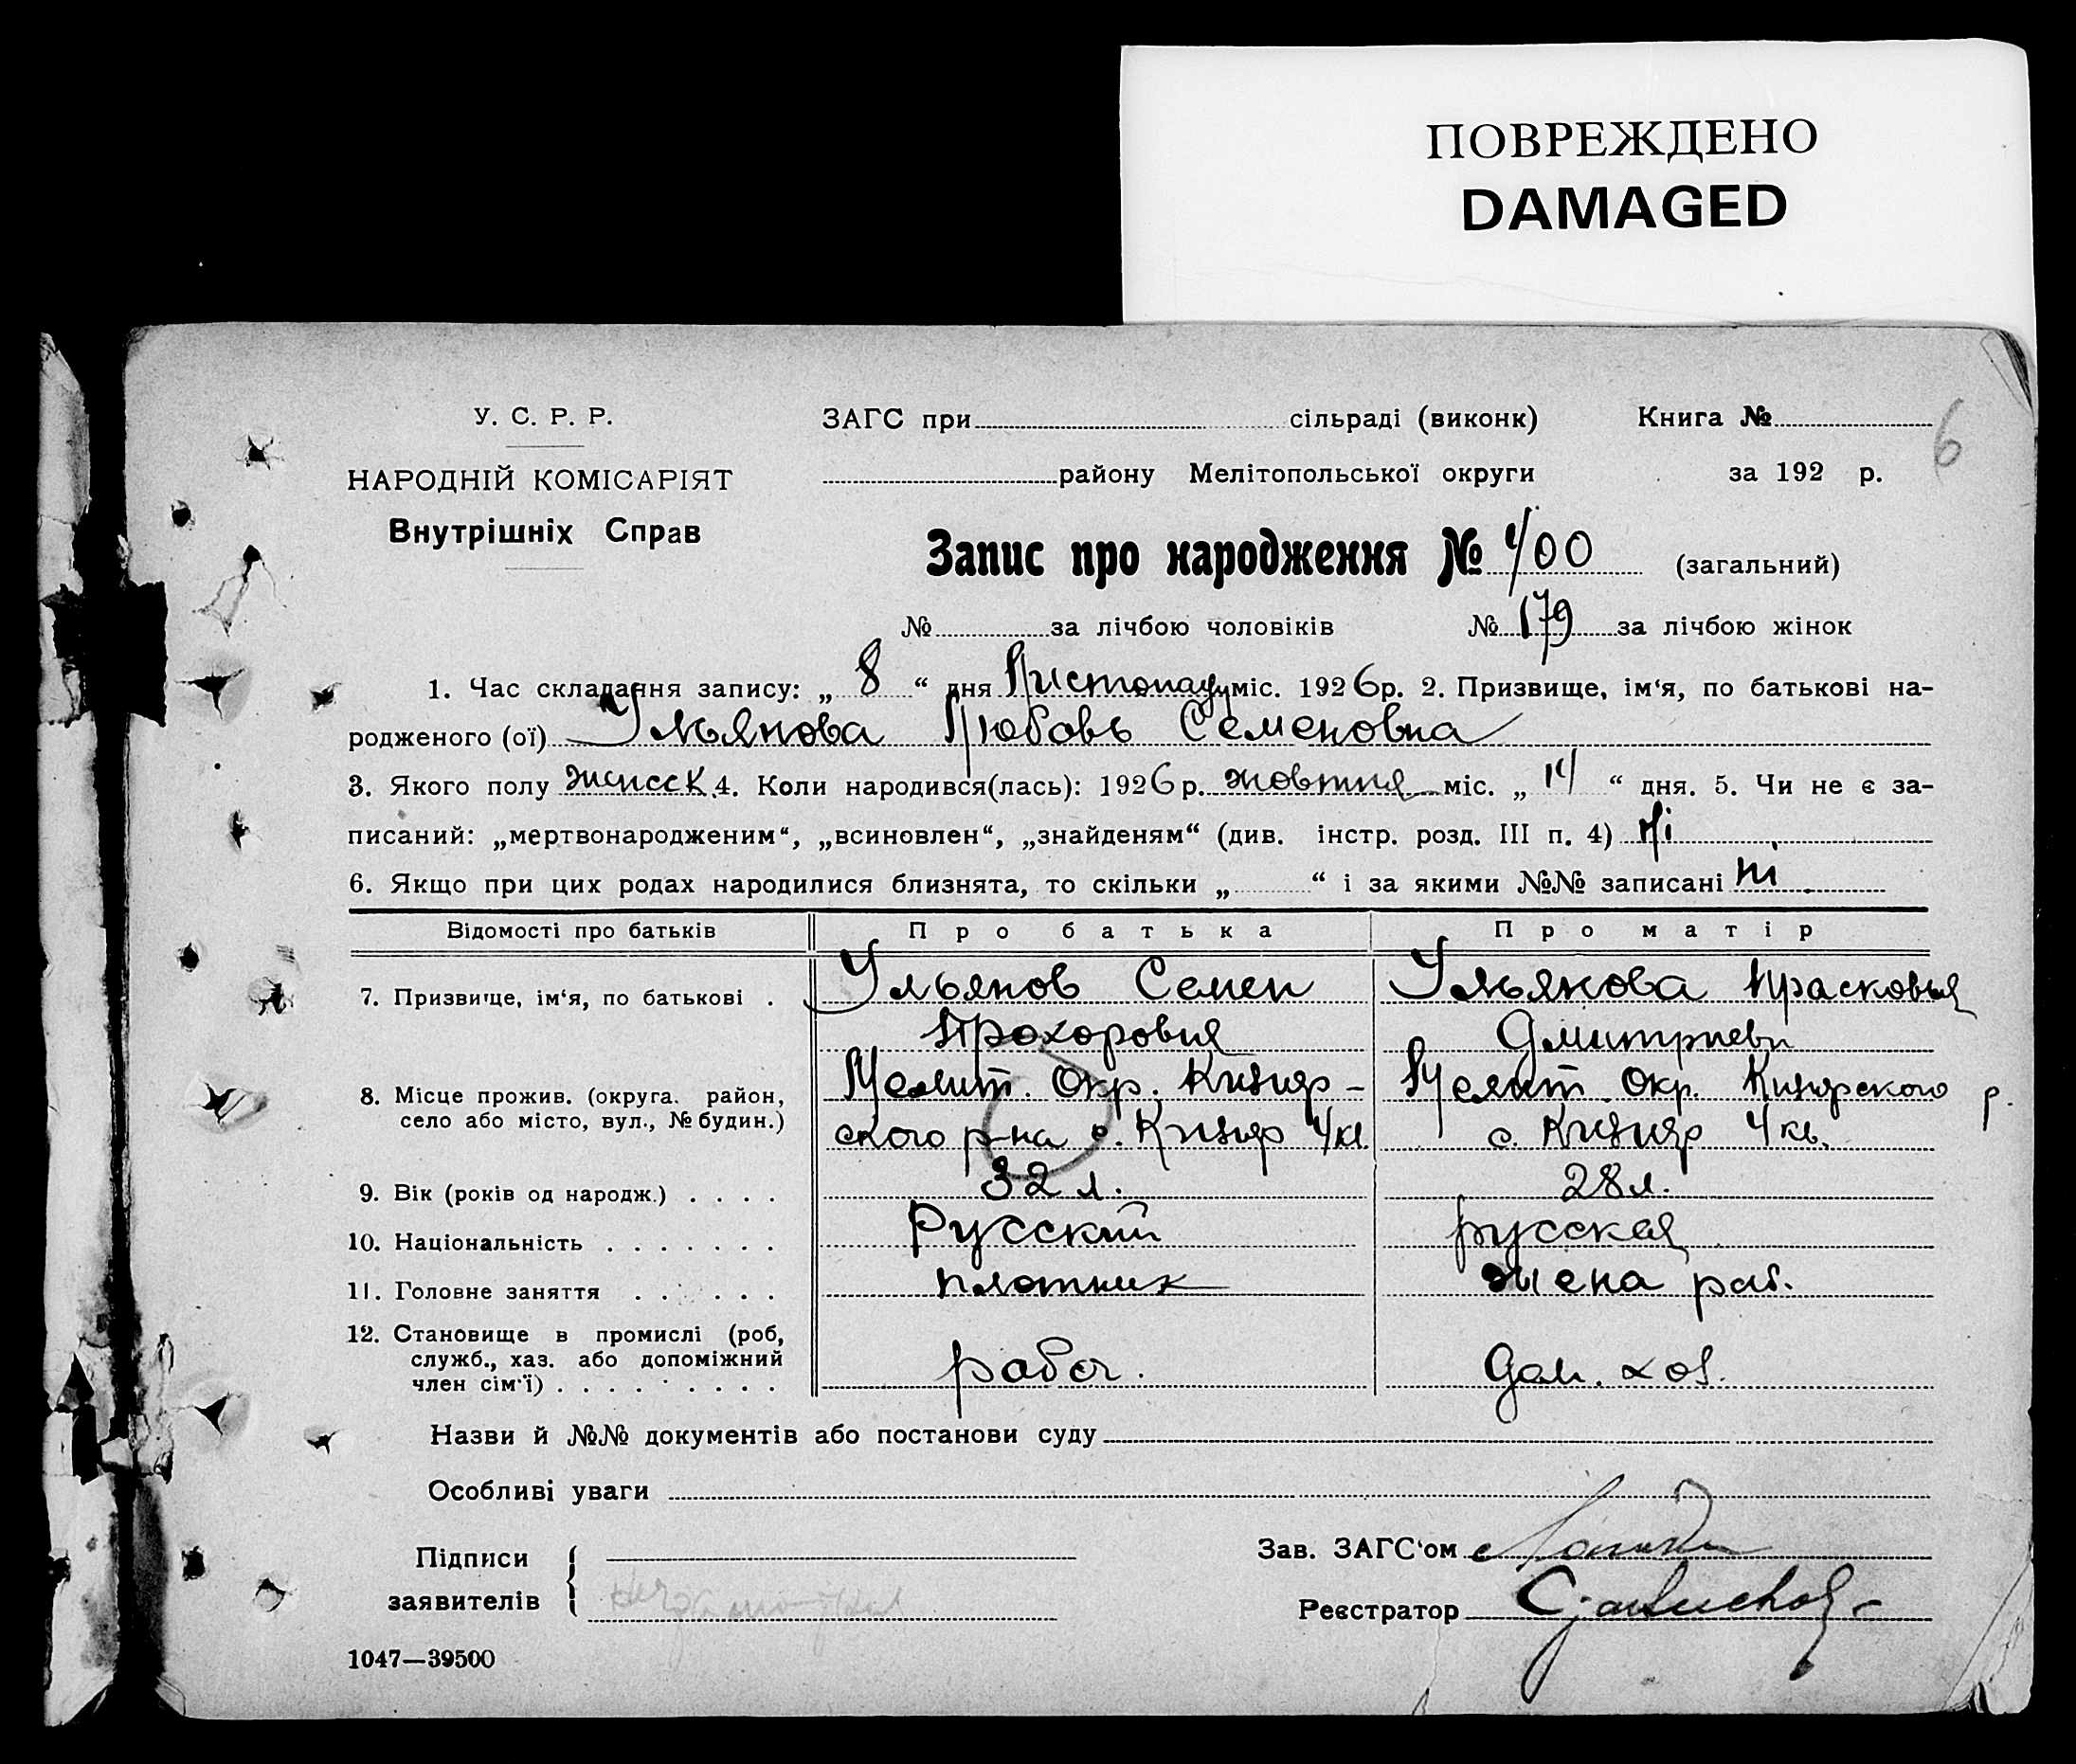 ПОВРЕЖДЕНО
DAMAGED
У. С. Р. Р.
НАРОДНІЙ КОМІСАРІЯТ
Внутрішніх Справ
ЗАГС при сільраді (виконк) Книга №
6
району Мелітопольської округи за 192 р.
Запис про народження № 400 (загальний)
№ за лічбою чоловіків № 179 за лічбою жінок
1. Час складання запису: „ 8 “ дня Листопаду міс. 1926 р. 2. Призвище, ім‘я, по батькові на-
родженого (ої) Ульянова Любовь Семеновна
3. Якого полу 4. Коли народився(лась): 1926 р. жовтня міс. „ 14 “ дня. 5. Чи не є за-
писаний: „мертвонародженим“, „всиновлен“, „знайденям“ (див. інстр. розд. III п. 4) Ні
6. Якщо при цих родах народилися близнята, то скільки „ “ і за якими №№ записані ні
Відомості про батьків Про батька Про матір
7. Призвище, ім‘я, по батькові . Ульянов Семен Ульянова Прасковья
Прохорович Дмитриевн
8. Місце прожив. (округа. район, село або місто, вул., № будин.) Мелит. Окр. Кизияр- Мелит. Окр. Кизиярского р.
ского р-на с. Кизияр 4 кв. с. Кизияр 4 кв.
9. Вік (років од народж.) . . . . 32 л. 28 л.
10. Національність . . . . . . . Русский русская
11. Головне заняття . . . . . . плотник жена раб.
12. Становище в промислі (роб,
служб., хаз. або допоміжний
член сім‘ї) . . . . . . . . . рабоч. дом. хоз.
Назви й №№ документів або постанови суду
Особливі уваги
Підписи
заявителів
Зав. ЗАГС‘ом
Реєстратор
1047—39500